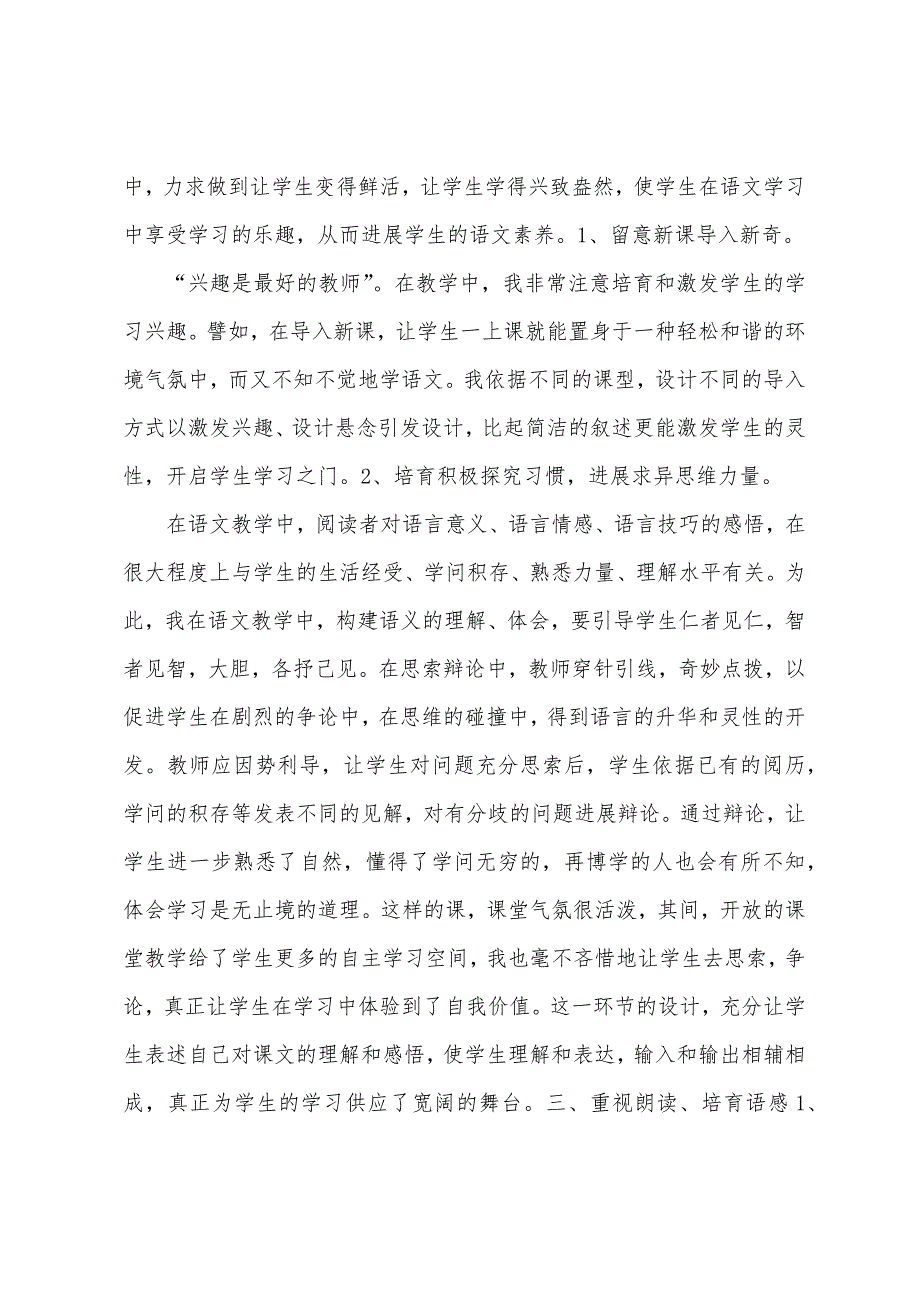 中，力求做到让学生变得鲜活，让学生学得兴致盎然，使学生在语文学习
中享受学习的乐趣，从而进展学生的语文素养。1、留意新课导入新奇。
“兴趣是最好的教师”。在教学中，我非常注意培育和激发学生的学
习兴趣。譬如，在导入新课，让学生一上课就能置身于一种轻松和谐的环
境气氛中，而又不知不觉地学语文。我依据不同的课型，设计不同的导入
方式以激发兴趣、设计悬念引发设计，比起简洁的叙述更能激发学生的灵
性，开启学生学习之门。2、培育积极探究习惯，进展求异思维力量。
在语文教学中，阅读者对语言意义、语言情感、语言技巧的感悟，在
很大程度上与学生的生活经受、学问积存、熟悉力量、理解水平有关。为
此，我在语文教学中，构建语义的理解、体会，要引导学生仁者见仁，智
者见智，大胆，各抒己见。在思索辩论中，教师穿针引线，奇妙点拨，以
促进学生在剧烈的争论中，在思维的碰撞中，得到语言的升华和灵性的开
发。教师应因势利导，让学生对问题充分思索后，学生依据已有的阅历，
学问的积存等发表不同的见解，对有分歧的问题进展辩论。通过辩论，让
学生进一步熟悉了自然，懂得了学问无穷的，再博学的人也会有所不知，
体会学习是无止境的道理。这样的课，课堂气氛很活泼，其间，开放的课
堂教学给了学生更多的自主学习空间，我也毫不吝惜地让学生去思索，争
论，真正让学生在学习中体验到了自我价值。这一环节的设计，充分让学
生表述自己对课文的理解和感悟，使学生理解和表达，输入和输出相辅相
成，真正为学生的学习供应了宽阔的舞台。三、重视朗读、培育语感 1、